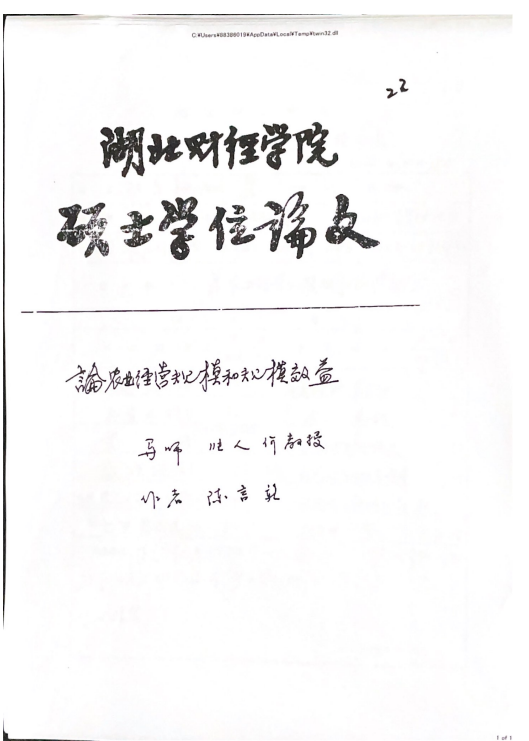 C:¥Users¥88386019¥AppData¥Local¥Temp¥twin32.dll
22
湖北财经学院
硕士学位論文
論农业经营规模和规模效益
导师 教授
作者 陈言
1 of 1